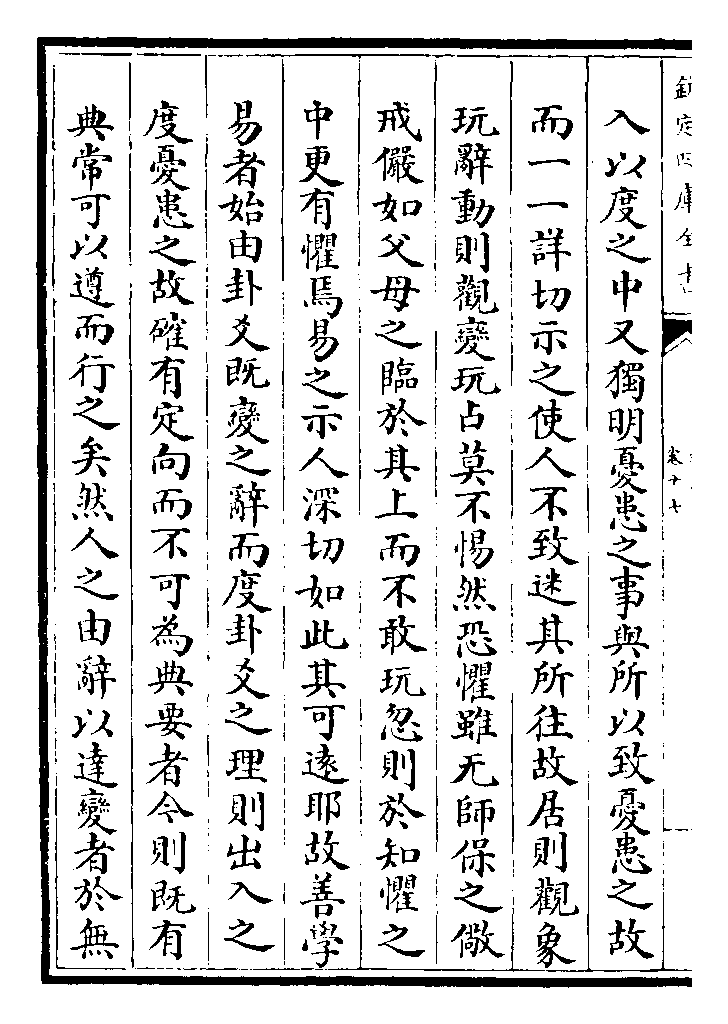 欽定四庫全書
卷十七
入以度之中又獨明憂患之事與所以致憂患之故
而一一詳切示之使人不致迷其所往故居則觀象
玩辭動則觀變玩占莫不惕然恐懼雖无師保之儆
戒儼如父母之臨於其上而不敢玩忽則於知懼之
中更有懼焉易之示人深切如此其可遠耶故善學
易者始由卦爻既變之辭而度卦爻之理則出入之
度憂患之故確有定向而不可為典要者今則既有
典常可以遵而行之矣然人之由辭以達變者於無